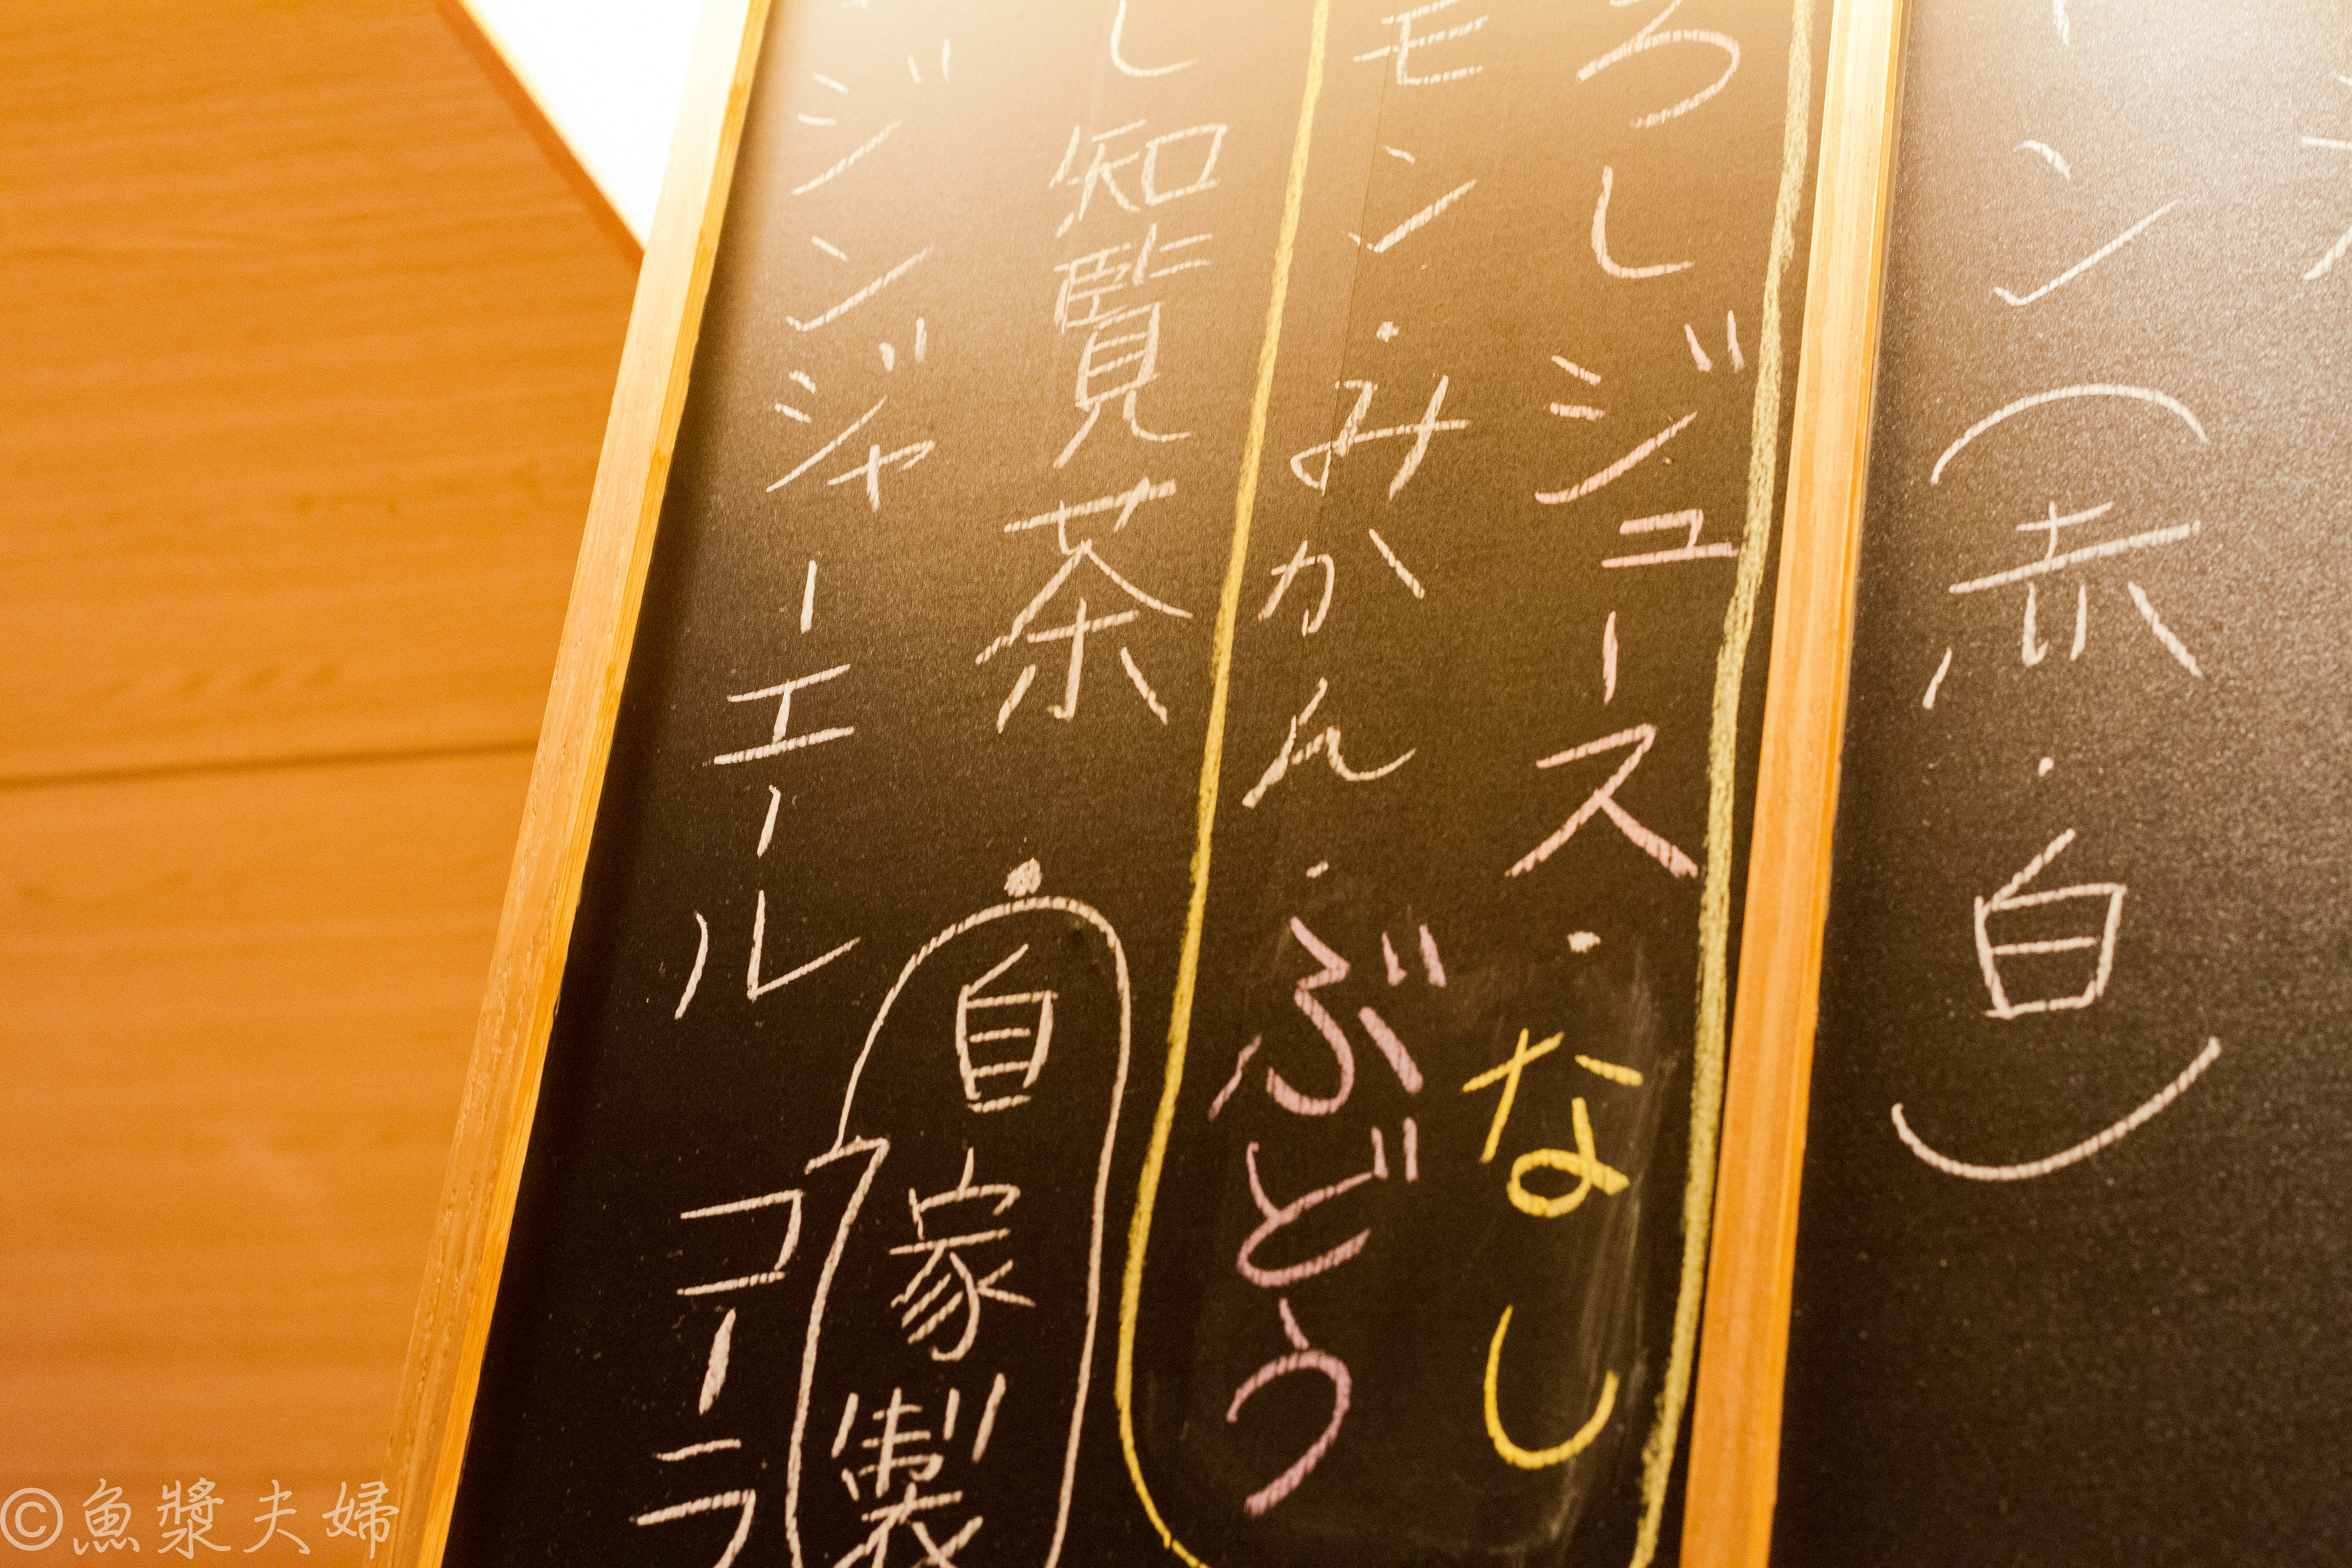 ン（赤・白）
ろしジュース・なし
モン・みかん・ぶどう
し知覧茶・自家製
ジンジャーエール コーラ
©魚漿夫婦